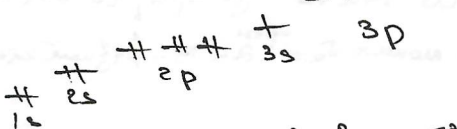 3s 3p
2p
2s
1s